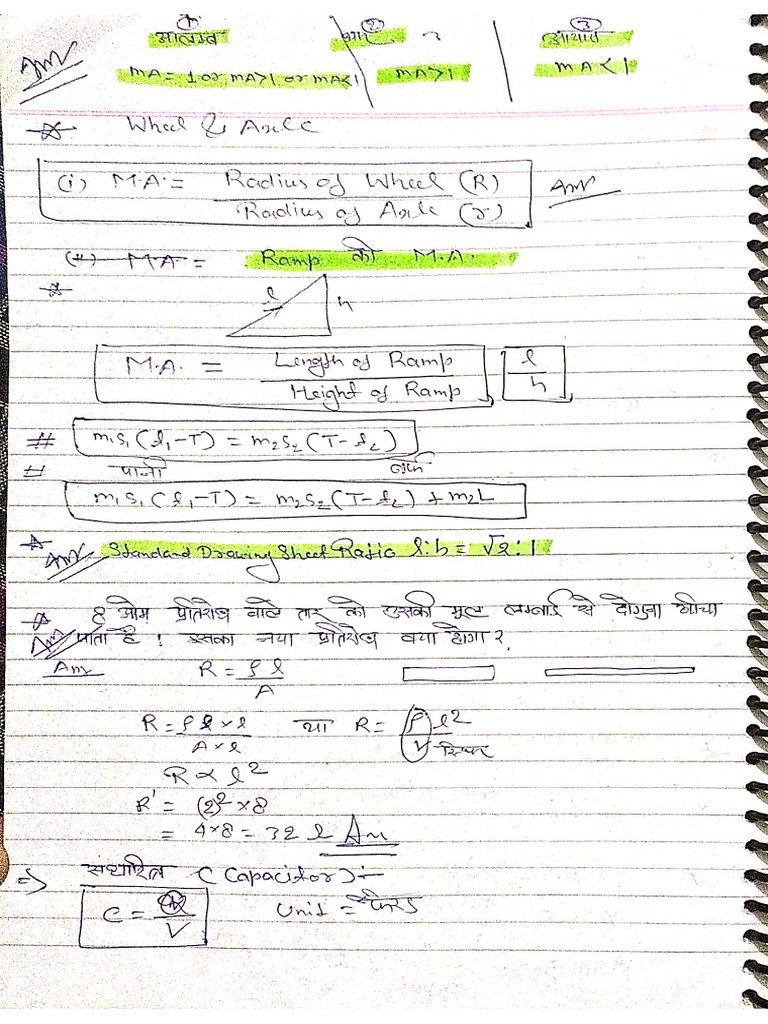 ① ② ③
आलम्ब भार आयास
Ans MA = 1 or MA>1 or MA<1 MA>1 MA<1
Wheel & Axle
(i) M.A. = Radius of Wheel (R) / Radius of Axle (r) Ans
(ii) MA = Ramp को M.A.
l h
M.A. = Length of Ramp / Height of Ramp l / h
# m₁s₁(t₁-T) = m₂s₂(T-t₂)
पानी बर्फ
m₁s₁(t₁-T) = m₂s₂(T-t₂) + m₂L
Ans Standard Drawing Sheet Ratio l:b = √2:1
8 ओम प्रतिरोध वाले तार को उसकी मूल लम्बाई से दोगुना खींचा
Ans जाता है। इसका नया प्रतिरोध क्या होगा?
Ans R = ρl / A
R = ρl×l / A×l या R = ρl² / V स्थिर
R ∝ l²
R' = (2)² × 8
= 4×8 = 32 Ω Ans
⇒ संधारित्र (Capacitor) :-
C = Q / V Unit = फैरड